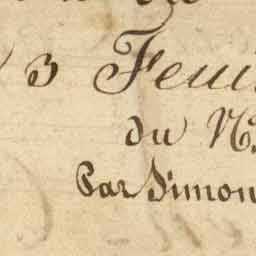 3 Feui
du N
Par Simon